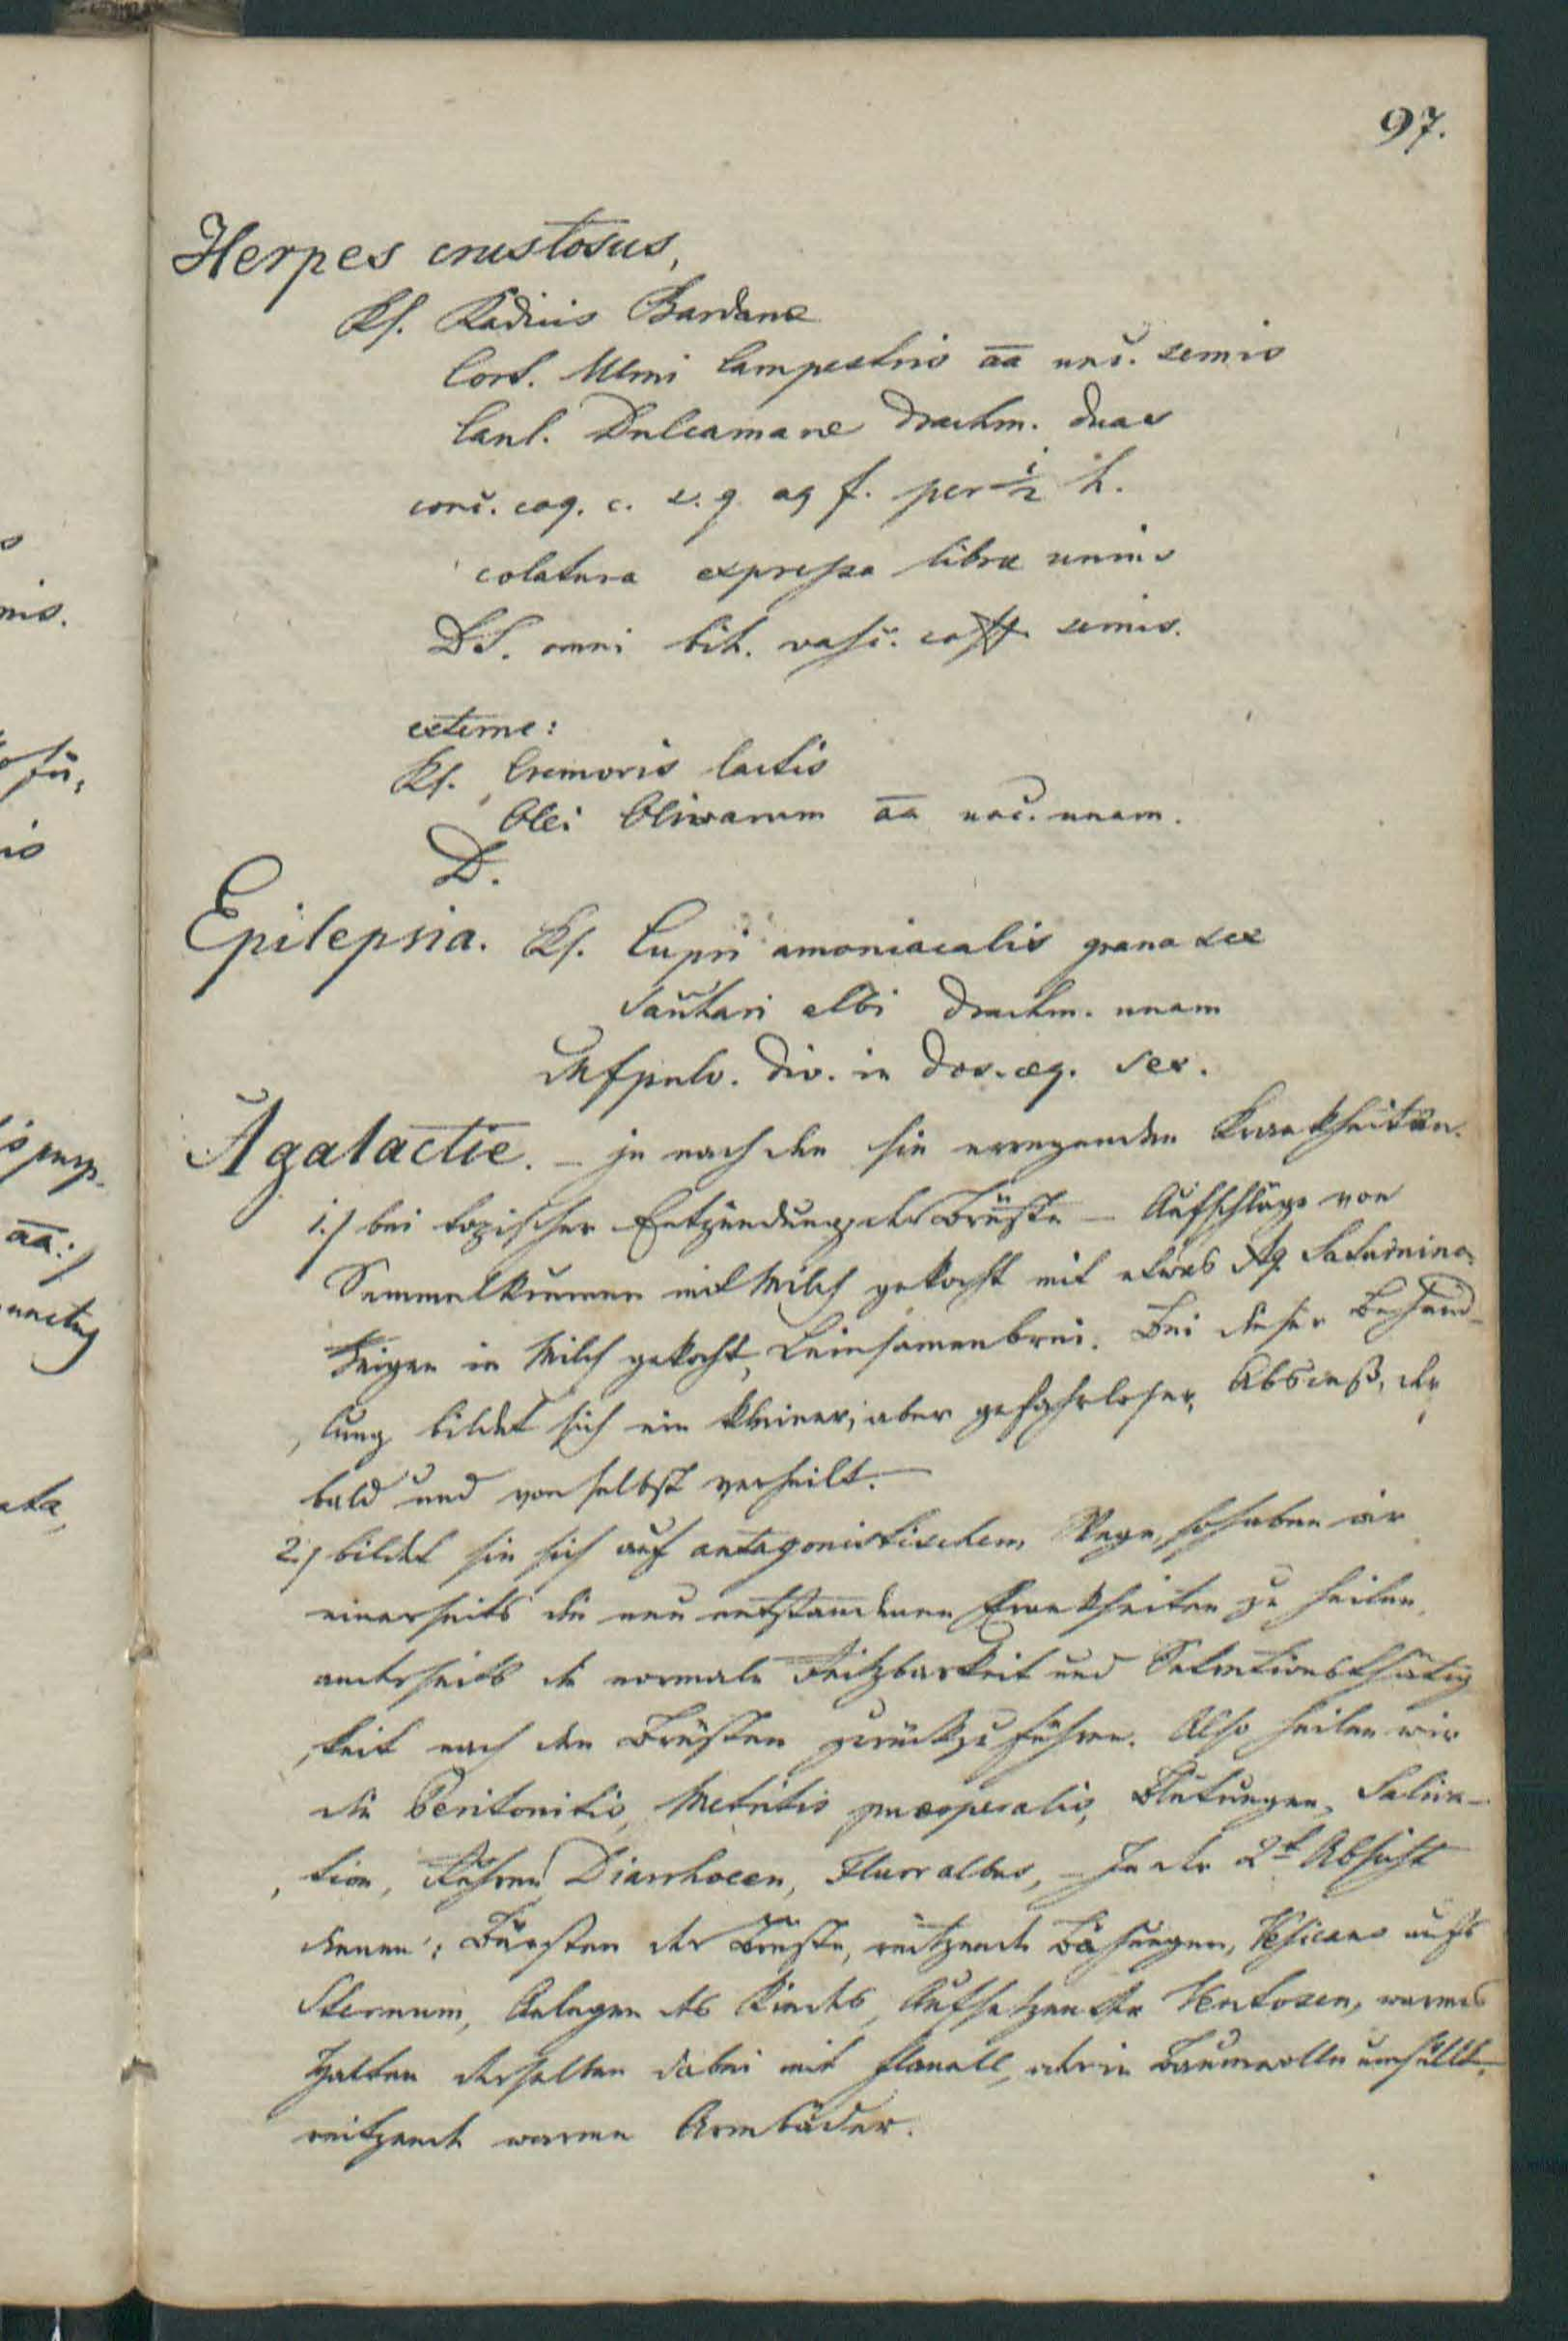 97.
Herpes crustosus,
Rf. Radicis Bardanæ
Cort. Ulmi campestris a͞a unc. semis
Caul. Dulcamaræ drachm. duas
conc. coq. c. s. q. aq f. per ½ h.
colatura expressa libræ unius
DS. omni bih. vasc. coff semis.
externe:
Rf. Cremoris lactis
Olei Olivarum a͞a unc. unam.
D.
Epilepsia. Rf. Cupri amoniacalis grana sex
Sacchari albi drachm. unam
Mfpulv. div. in dos. æq. sex.
Agalactie. – je nach den sie erregenden Krankheiten.
1.) bei topischer Entzündung der Brüste – Aufschläge von
Semmelkrumen mit Milch gekocht mit etwas Aq. Saturnina,
Feigen in Milch gekocht, Leinsamenbrei. Bei dieser Behand-
lung bildet sich ein kleiner, aber gefahrloser, Absceß, der
bald und von selbst verheilt. –
2.) bildet sie sich auf antagonistischem Wege, so haben wir
einerseits die neu entstandenen Krankheiten zu heilen,
anderseits die normale Reitzbarkeit und Sekretionsthätig
keit nach den Brüsten zurückzuführen. Also heilen wir
die Peritonitis, Metritis puerperalis, Blutungen, Saliva-
tion, Ruhren, Diarrhoeen, Fluor albus, – In der 2t Absicht
dienen: Bürsten der Brüste, reitzende Bähungen, Vesicans aufs
Sternum, Anlegen des Kindes, Aufsetzen der Ventosen, warmes
Halten derselben dabei mit Flanell, oder in Baumwolle umhüllt,
reitzende warme Armbäder.